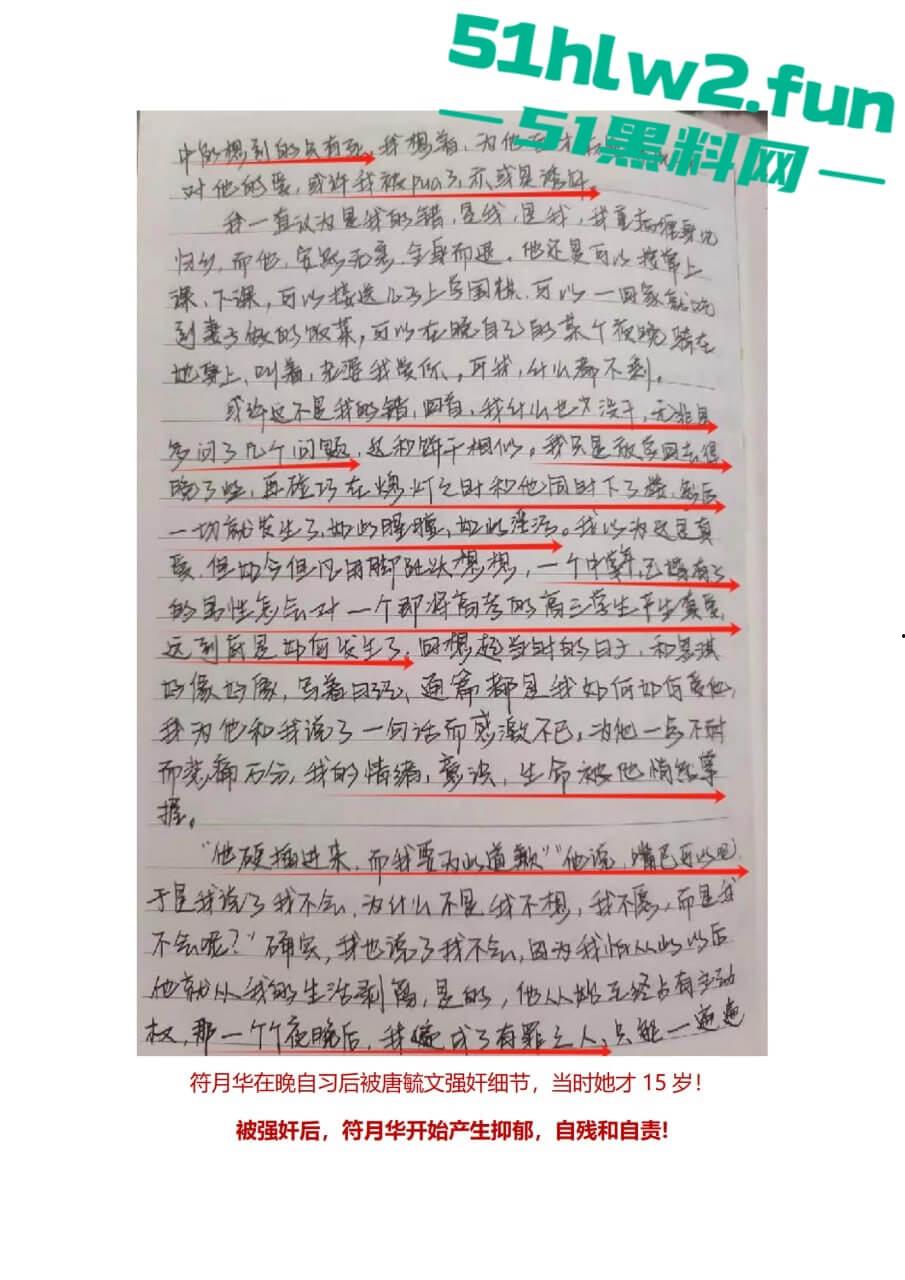 51hlw2.fun
51黑料网
中能想到的只有死，我想着，为他
对他的爱，或许我被pua了，亦或是诱奸。
我一直认为是我的错，是我，是我，我
归乡，而他，安然无恙，全身而退。他还是可以 上
课、下课，可以接送儿子上学围棋，可以一回家就吃
到妻子做的饭菜，可以在晚自习的某个夜晚骑在
她身上，叫着，老婆我爱你。可我，什么都不剩。
或许这不是我的错，回首，我什么也没干，无非是
多问了几个问题，这和饼干相似。我只是放学回去得
晚了些，再碰巧在熄灯之时和他同时下了楼，然后
一切就发生了，如此腥膻，如此淫污。我以为这是真
爱，但如今但凡用脚趾头想想，一个中年，已婚有子
的男性怎会对一个即将高考的高三学生产生真爱，
这到底是如何发生了，回想起当时的日子，和思琪
好像好像，写着日记，通篇都是我如何如何爱他，
我为他和我说了一句话而感激不已，为他一点不耐
而悲痛万分，我的情绪，意识，生命被他悄然掌
握。
“他硬插进来，而我要为此道歉”“他说，嘴巴可以吧，
于是我说了我不会，为什么不是我不想，我不愿，而是我
不会呢？”确实，我也说了我不会，因为我怕从此以后
他就从我的生活剥离，是的，他从始至终占有主动
权，那一个个夜晚后，我 成了有罪之人，只能一遍遍
符月华在晚自习后被唐毓文强奸细节，当时她才 15 岁！
被强奸后，符月华开始产生抑郁，自残和自责!